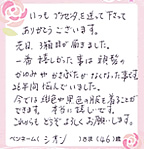 いつもプラセンタを送って下さって
ありがとうございます。
先日、3箱目が届きました。
一番嬉しかった事は頭髪の
かゆみやかさぶたがなくなった事です。
26年間悩んでいました。
今では紺色や黒色の服を着ることが
できます。本当に嬉しいです。
これからもどうぞよろしくお願いします。
ペンネーム( シオン )さま(46)歳